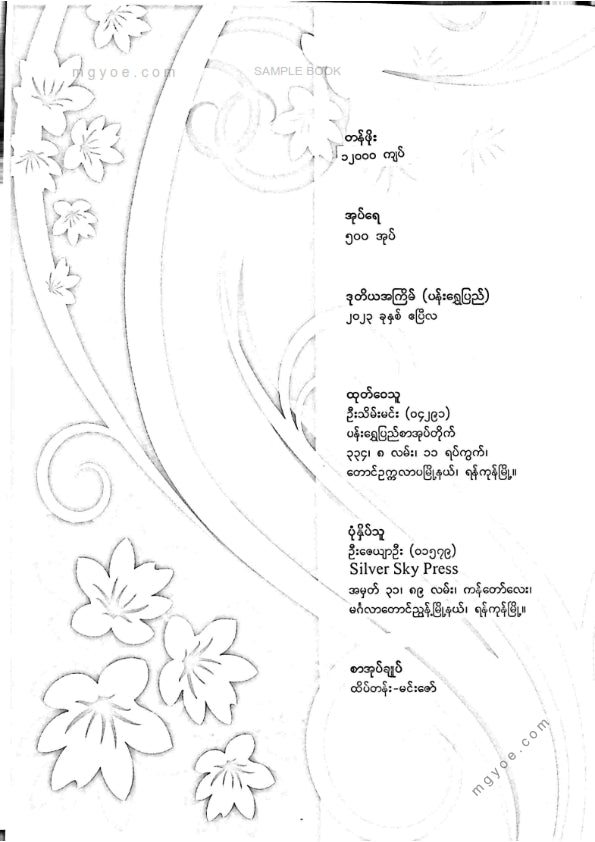 mgyoe.com
SAMPLE BOOK
တန်ဖိုး
၁၂၀၀၀ ကျပ်
အုပ်ရေ
၅၀၀ အုပ်
ဒုတိယအကြိမ် (ပန်းရွှေပြည်)
၂၀၂၃ ခုနှစ် ဧပြီလ
ထုတ်ဝေသူ
ဦးသိမ်းမင်း (၀၄၂၉၁)
ပန်းရွှေပြည်စာအုပ်တိုက်
၃၃၄၊ ၈ လမ်း၊ ၁၁ ရပ်ကွက်၊
တောင်ဥက္ကလာပမြို့နယ်၊ ရန်ကုန်မြို့။
ပုံနှိပ်သူ
ဦးဇေယျာဦး (၀၁၅၇၉)
Silver Sky Press
အမှတ် ၃၁၊ ၈၉ လမ်း၊ ကန်တော်လေး၊
မင်္ဂလာတောင်ညွန့်မြို့နယ်၊ ရန်ကုန်မြို့။
စာအုပ်ချုပ်
ထိပ်တန်း-မင်းဇော်
mgyoe.com